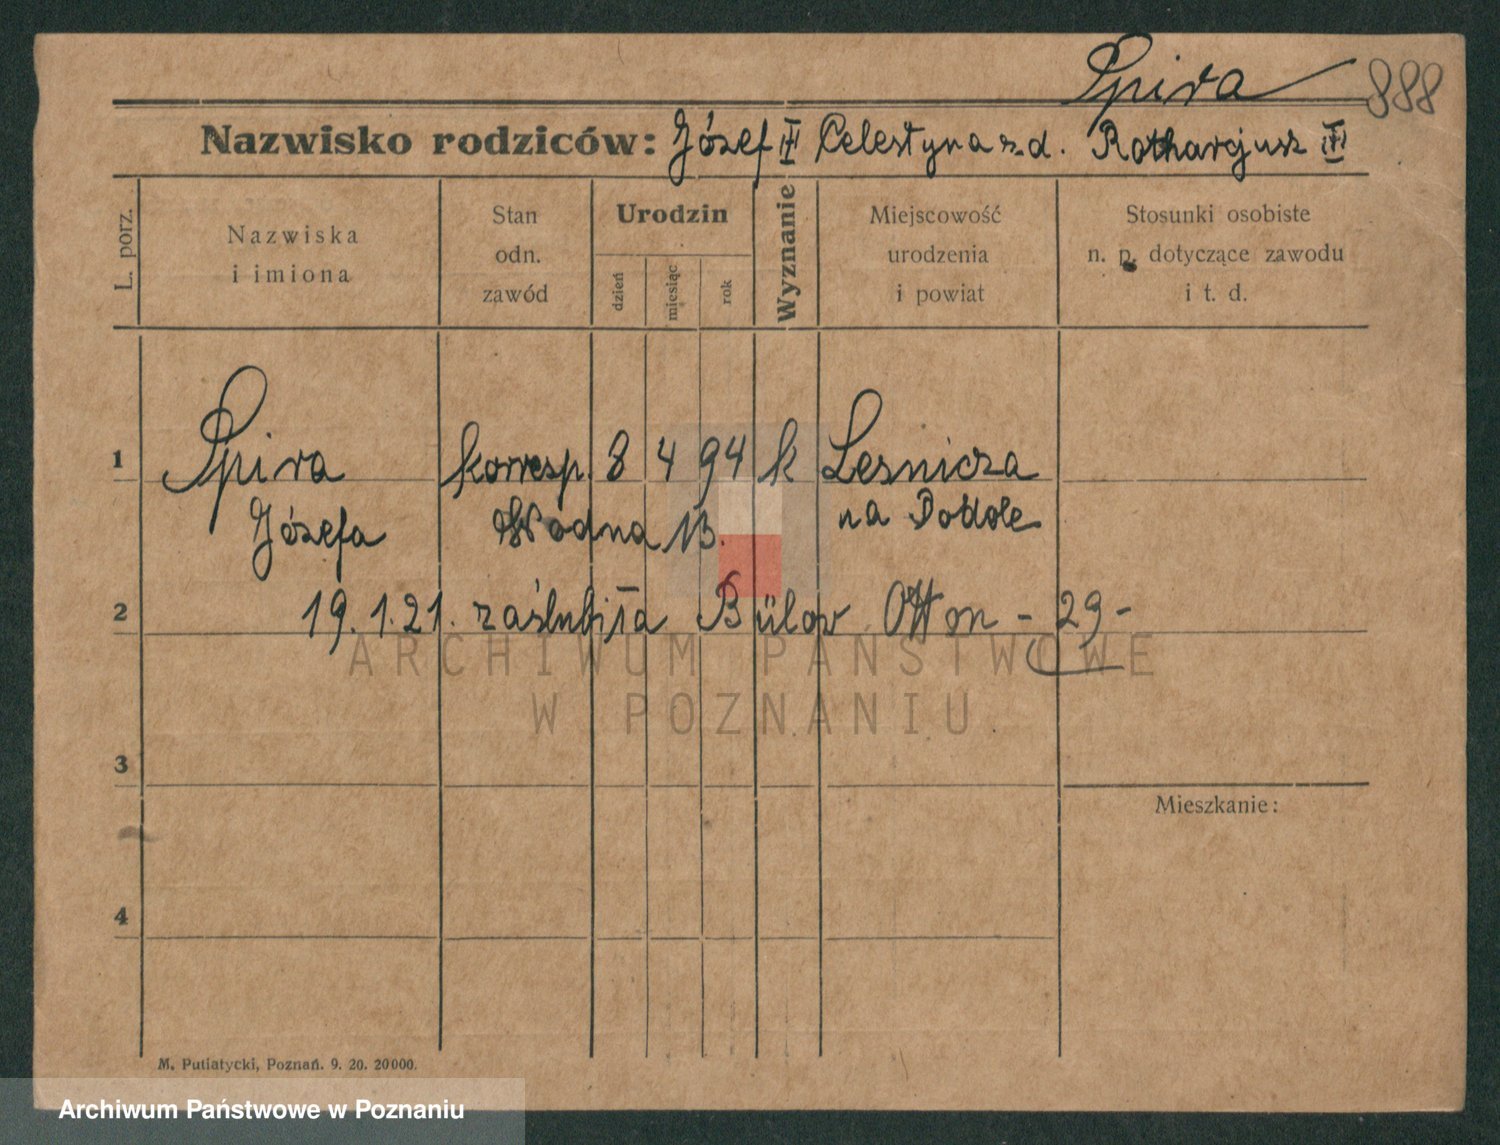 Spira 888
Nazwisko rodziców: Józef ╫ Celestyna z d. Rotharcjusz ╫
L. porz.
Nazwiska i imiona
Stan odn. zawód
Urodzin
dzień
miesiąc
rok
Wyznanie
Miejscowość urodzenia i powiat
Stosunki osobiste n. p. dotyczące zawodu i t. d.
1 Spira korresp. 8 4 94 k Lesnicza
Józefa Wodna 13. na Podole
2 19.1.21. zaślubiła Bülow Otton - 29 -
3
Mieszkanie:
4
M. Putiatycki, Poznań. 9. 20. 20000.
ARCHIWUM PAŃSTWOWE
W POZNANIU
Archiwum Państwowe w Poznaniu